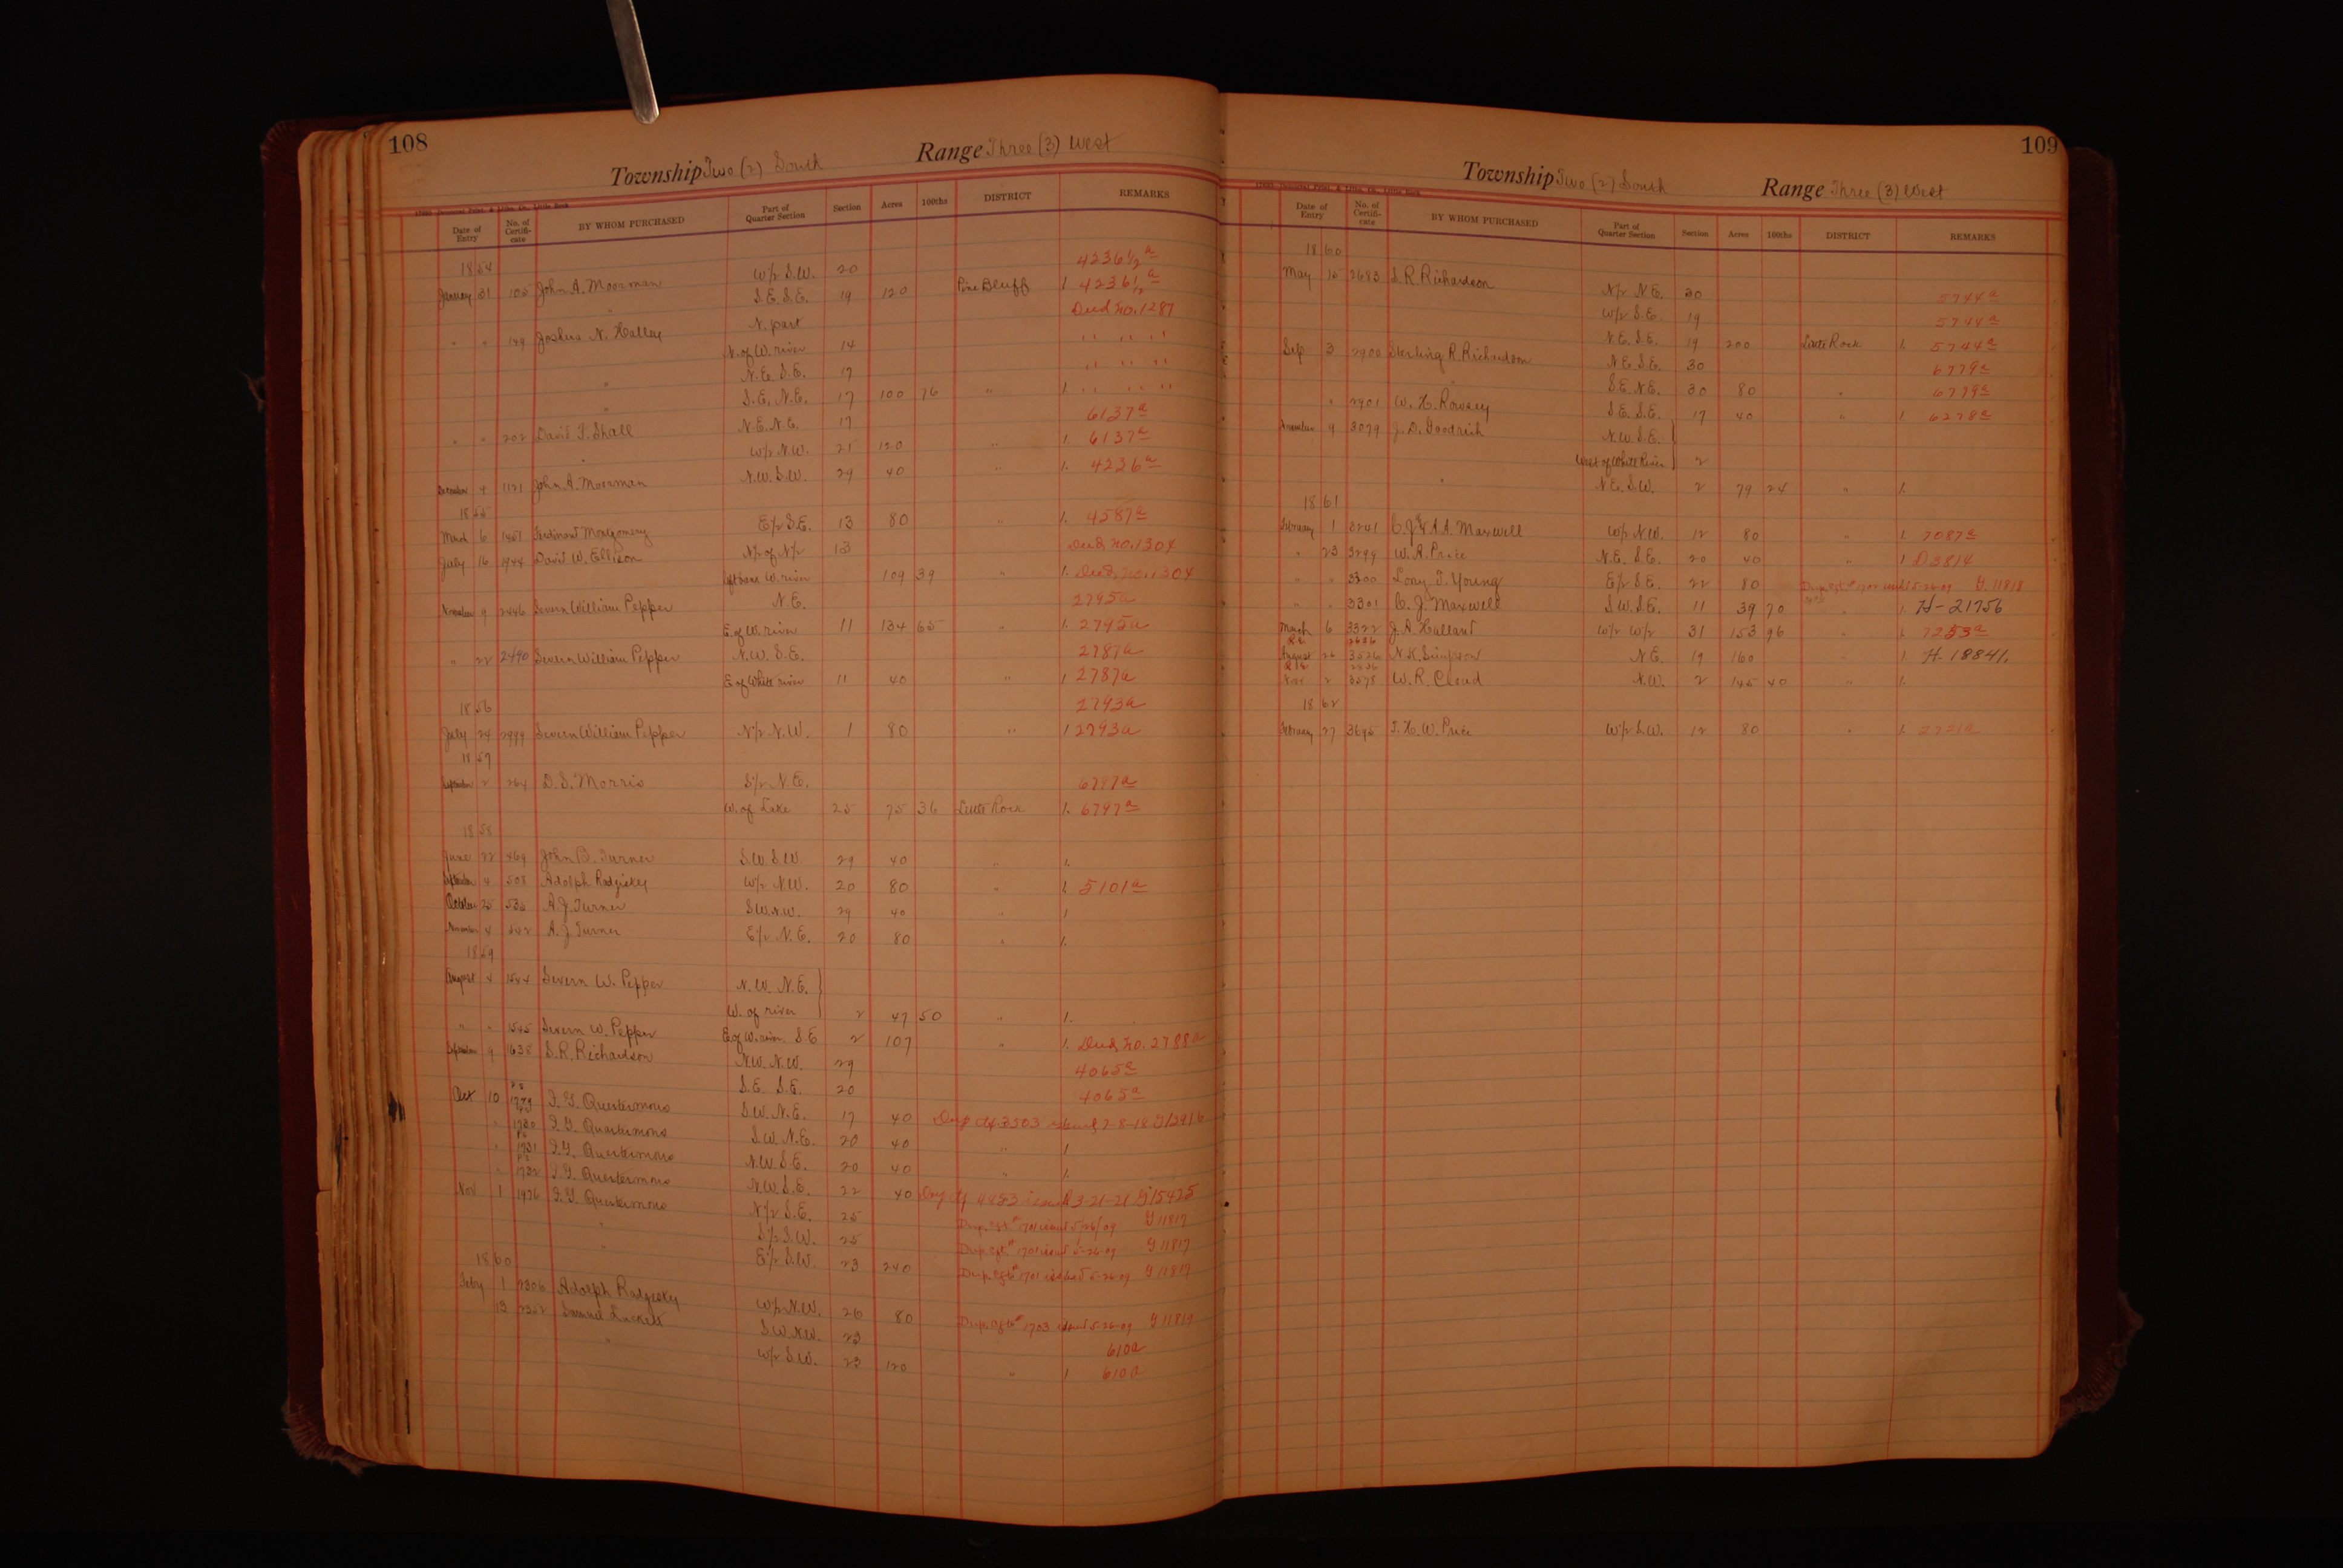 108
Township Two (2) South Range Three (3) West
Date of Entry No. of Certifi-cate BY WHOM PURCHASED Part of Quarter Section Section Acres 100ths DISTRICT REMARKS
1854 W/2 S.W. 20 4236 1/2 a
January 31 105 John A. Moorman S.E. S.E. 19 120 Pine Bluff 1 4236 1/2 a
" N. part Deed No. 1287
" " 129 Joshua N. Halley N. of W. river 14 " " "
N.E. S.E. 17 " " "
" S.E. N.E. 17 100 76 " 1. " " "
" N.E. N.E. 17 6137 a
" " 202 David F. Shall W/2 N.W. 21 120 " 1. 6137 a
December 4 1121 John A. Moorman N.W. S.W. 29 40 " 1. 4236 a
1855
March 6 1451 Ferdinand Montgomery E/2 S.E. 13 80 " 1. 4587 a
July 16 1944 David W. Ellison N/2 of N/2 13 Deed No. 1304
left bank W. river 109 39 " 1. Deed No. 1304
November 9 2446 Severn William Pepper N.E. 2795a
E. of W. river 11 134 65 " 1. 2795a
" 22 2490 Severn William Pepper N.W. S.E. 2787a
E of White river 11 40 " 1 2787a
1856 2793a
July 24 2999 Severn William Pepper N/2 N.W. 1 80 " 1 2793a
1857
September 2 264 D. S. Morris S/2 N.E. 6797a
W. of Lake 25 75 36 Little Rock 1. 6797 a
1858
June 22 469 John B. Turner S.W. S.W. 29 40 " 1.
September 4 508 Adolph Radgisky W/2 N.W. 20 80 " 1. 5101 a
October 25 535 A. J. Turner S.W. N.W. 29 40 " 1
November 4 542 A. J. Turner E/2 N.E. 20 80 " 1.
1859
August 4 1544 Severn W. Pepper N.W. N.E.
W. of river 2 47 50 " 1.
" " 1545 Severn W. Pepper E of W. river S.E 2 107 " 1. Deed No. 2788 a
September 9 1638 S. R. Richardson N.W. N.W. 29 4065 a
S.E S.E. 20 4065 a
Oct 10 1779 I. G. Questermous S.W. N.E. 17 40 Dup Ctf. 3503 issued 7-8-18 G13916
" 1780 I. G. Questermous S.W. N.E. 20 40 " 1
" 1781 I. G. Questermous N.W. S.E. 20 40 " 1.
" 1782 I. G. Questermous N.W. S.E. 22 40 Dup Ctf 4883 issued 3-21-21 G15425
Nov 1 1926 I. G. Questermous N/2 S.E. 25 Dup. Cft. # 1701 issued 5/26/09 G 11817
" S/2 S.W. 25 Dup. Cft. # 1701 issued 5-26-09 G 11817
" E/2 S.W. 23 240 Dup. Cft # 1701 issued 5-26-09 G 11817
1860
Feby 1 2306 Adolph Radgesky W/2 N.W. 26 80 Dup. Cft # 1703 issued 5-26-09 G 11817
13 2352 Samuel Luckett S.W. N.W. 23 610a
" W/2 S.W. 23 120 " 1 610a
109
Township Two (2) South Range Three (3) West
Date of Entry No. of Certifi-cate BY WHOM PURCHASED Part of Quarter Section Section Acres 100ths DISTRICT REMARKS
1860
May 15 2683 S. R. Richardson N/2 N.E. 30 5744 a
W/2 S.E. 19 5744 a
N.E. S.E. 19 200 Little Rock 1. 5744 a
Sep. 3 2900 Sterling R. Richardson N.E. S.E. 30 6779 a
" S.E. N.E. 30 80 " 6779 a
" 2901 W. H. Rowsey S.E. S.E. 17 40 " 1. 6278 a
November 9 3079 J. D. Goodrich N.W. S.E.
West of White River 2
" N.E. S.W. 2 79 24 " 1.
1861
February 1 3241 C. J. & A. A. Maxwell W/2 N.W. 12 80 " 1. 7087 a
" 23 3299 W. A. Price N.E. S.E. 20 40 " 1 D 3814
" " 3300 Lony T. Young E/2 S.E. 22 80 Dup. Cft # 1702 issued 5-26-09 G. 11818
" " 3301 C. J. Maxwell S.W. S.E. 11 39 70 " 1. H-21756
March 6 3322 J. A. Hallant W/2 W/2 31 153 96 " 1. 7253 a
August 26 3526 N. K. Simpson N.E. 19 160 " 1 H-18841.
Nov 2 3578 W. R. Cloud N.W. 2 145 40 " 1.
1862
February 27 3695 T. H. W. Price W/2 S.W. 12 80 " 1. 2721a